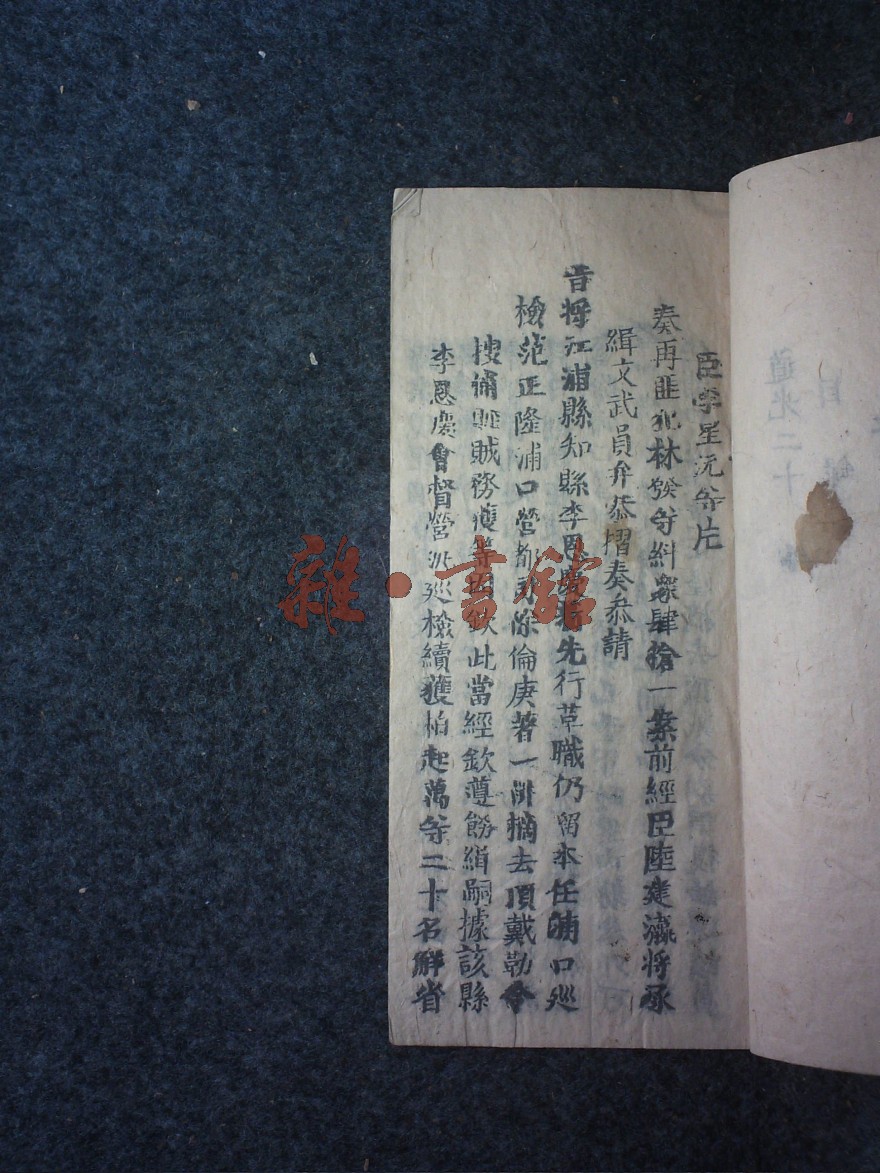 臣李星沅等片
奏再匪犯林發等糾眾肆搶一案前經臣陸建瀛將承
緝文武員弁恭摺奏叅請
旨將江浦縣知縣李恩慶著先行革職仍留本任浦口巡
檢范正隆浦口營都司陳倫庚著一併摘去頂戴勒令
搜捕匪賊務獲等因欽此當經欽遵飭緝嗣據該縣
李恩慶會督營汛巡檢續獲柏起萬等二十名解省
目錄
道光二十
雜·書館